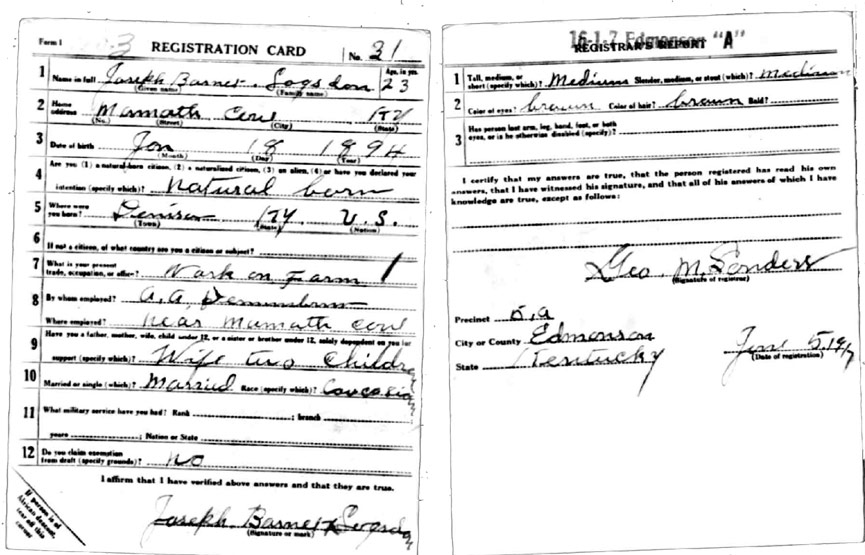 Form 1 3 REGISTRATION CARD No. 31
1 Name in full Joseph Barnet Logsdon Age, in yrs. 23
(Given name) (Family name)
2 Home address Mamath Cove Ky
(No.) (Street) (City) (State)
3 Date of birth Jan 18 1894
(Month) (Day) (Year)
4 Are you (1) a natural-born citizen, (2) a naturalized citizen, (3) an alien, (4) or have you declared your
intention (specify which)? Natural born
5 Where were you born? Ky U.S.
(Town) (State) (Nation)
6 If not a citizen, of what country are you a citizen or subject?
7 What is your present trade, occupation, or office? Work on Farm 1
8 By whom employed? A.A.
Where employed? near Mamath cove
9 Have you a father, mother, wife, child under 12, or a sister or brother under 12, solely dependent on you for
support (specify which)? Wife two Childr
10 Married or single (which)? Married Race (specify which)? Caucasian
11 What military service have you had? Rank ; branch
years ; Nation or State
12 Do you claim exemption from draft (specify grounds)? No
I affirm that I have verified above answers and that they are true.
Joseph Barnet Logsdon
(Signature or mark)
If person is of
African descent,
tear off this
corner
16-1-7 Edmonson "A"
REGISTRAR'S REPORT
1 Tall, medium, or short (specify which)? Medium Slender, medium, or stout (which)? Medium
2 Color of eyes? brown Color of hair? brown Bald?
3 Has person lost arm, leg, hand, foot, or both
eyes, or is he otherwise disabled (specify)?
I certify that my answers are true, that the person registered has read his own
answers, that I have witnessed his signature, and that all of his answers of which I have
knowledge are true, except as follows:
Geo. M. Sanders
(Signature of registrar)
Precinct 5, a
City or County Edmonson
State Kentucky June 5, 1917
(Date of registration)